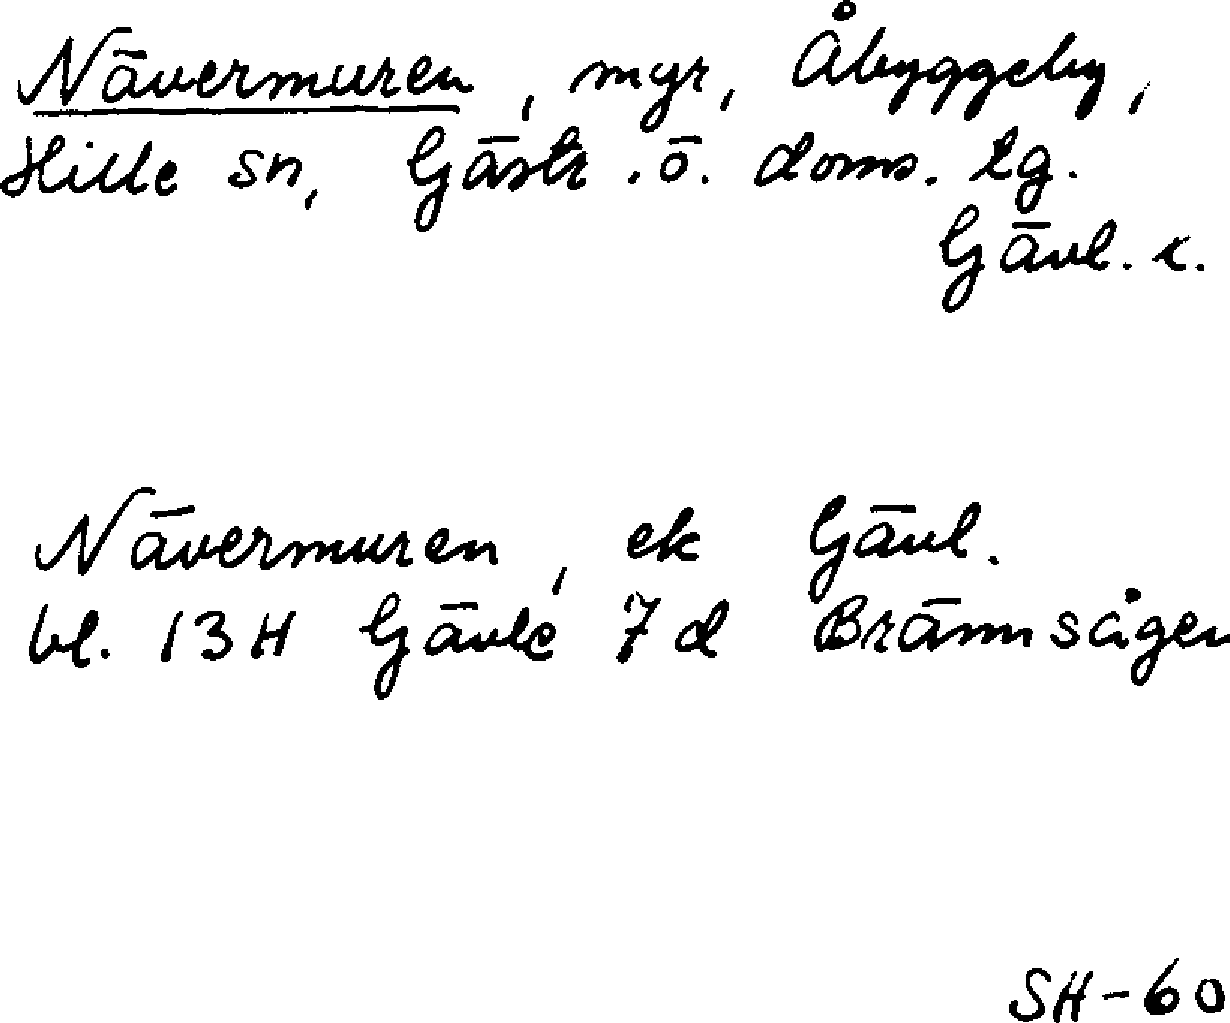 Nävermuren, myr, Åbyggeby,
Hille sn, Gästr. ö. doms. lg.
Gävl. l.
Nävermuren, ek Gävl.
bl. 13H Gävle 7d Brännsågen
SH-60